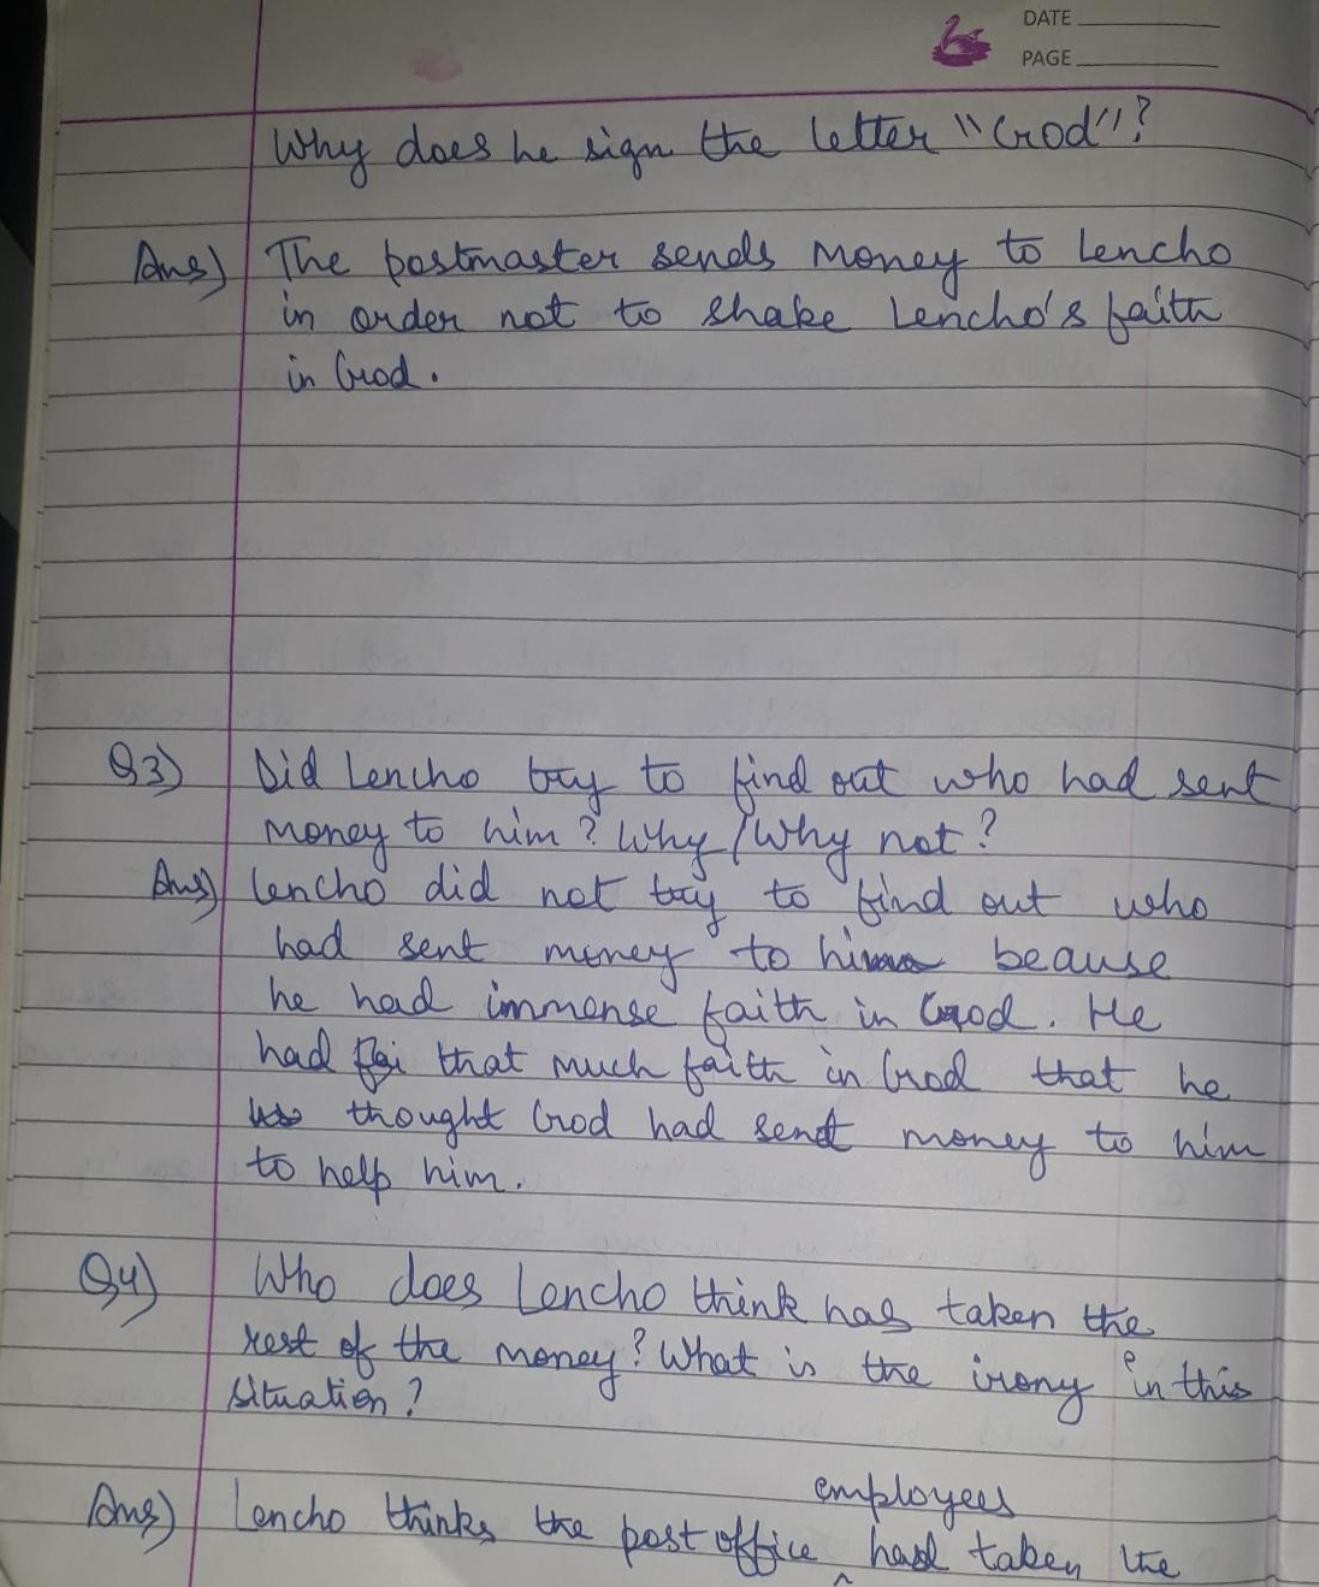 DATE
PAGE
Why does he sign the letter "God"?
Ans) The postmaster sends money to Lencho
in order not to shake Lencho's faith
in God.
Q3) Did Lencho try to find out who had sent
money to him? Why/Why not?
Ans) Lencho did not try to find out who
had sent money to him beause
he had immense faith in God. He
had fai that much faith in God that he
thought God had sent money to him
to help him.
Q4) Who does Lencho think has taken the
rest of the money? What is the irony in this
situation?
employees
Ans) Lencho thinks the post office ^ had taken the